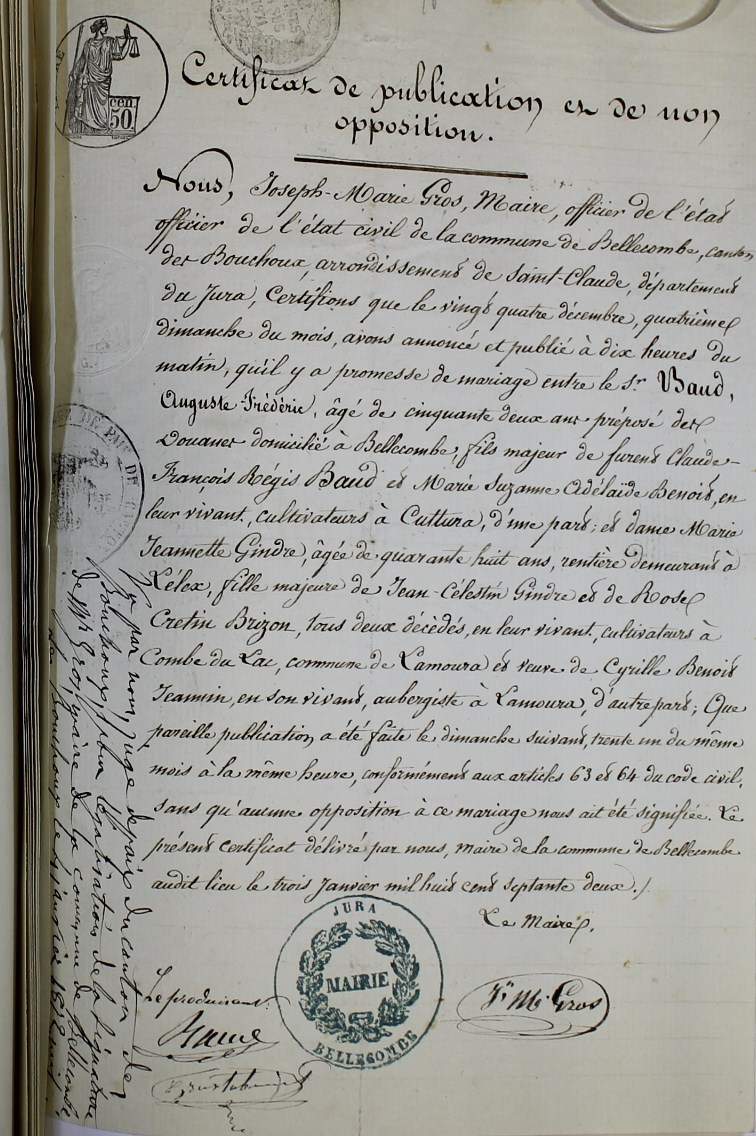 cen
50
Certificat de publication et de non
opposition.
Nous, Joseph-Marie Gros, Maire, officier de l'état
officier de l'état civil de la commune de Bellecombe, canton
des Bouchoux, arrondissement de Saint-Claude, département
du Jura, Certifions que le vingt quatre décembre, quatrième
dimanche du mois, avons annoncé et publié à dix heures du
matin, qu'il y a promesse de mariage entre le Sr Baud,
Auguste-Frédéric, âgé de cinquante deux ans préposé des
Douanes domicilié à Bellecombe, fils majeur de furent Claude-
François Régis Baud et Marie Suzanne Adélaïde Benoit, en
leur vivant, cultivateurs à Cuttura, d'une part; et dame Marie
Jeannette Gindre, âgée de quarante huit ans, rentière demeurant à
Lélex, fille majeure de Jean-Célestin Gindre et de Rose
Cretin Brizon, tous deux décédés, en leur vivant, cultivateurs à
Combe du Lac, commune de Lamoura et veuve de Cyrille Benoit
Jeannin, en son vivant, aubergiste à Lamoura, d'autre part; Que
pareille publication a été faite le dimanche suivant, trente un du même
mois à la même heure, conformément aux articles 63 et 64 du code civil,
sans qu'aucune opposition à ce mariage nous ait été signifiée. Le
présent certificat délivré par nous, maire de la commune de Bellecombe
audit lieu le trois Janvier mil huit cent septante deux./.
Le Maire,
Le produisant:
Jh Mie Gros
JURA
MAIRIE
BELLECOMBE
Vu par nous, juge de paix du canton des
Bouchoux, pour légalisation de la signature
de Mr Gros, maire de la commune de Bellecombe